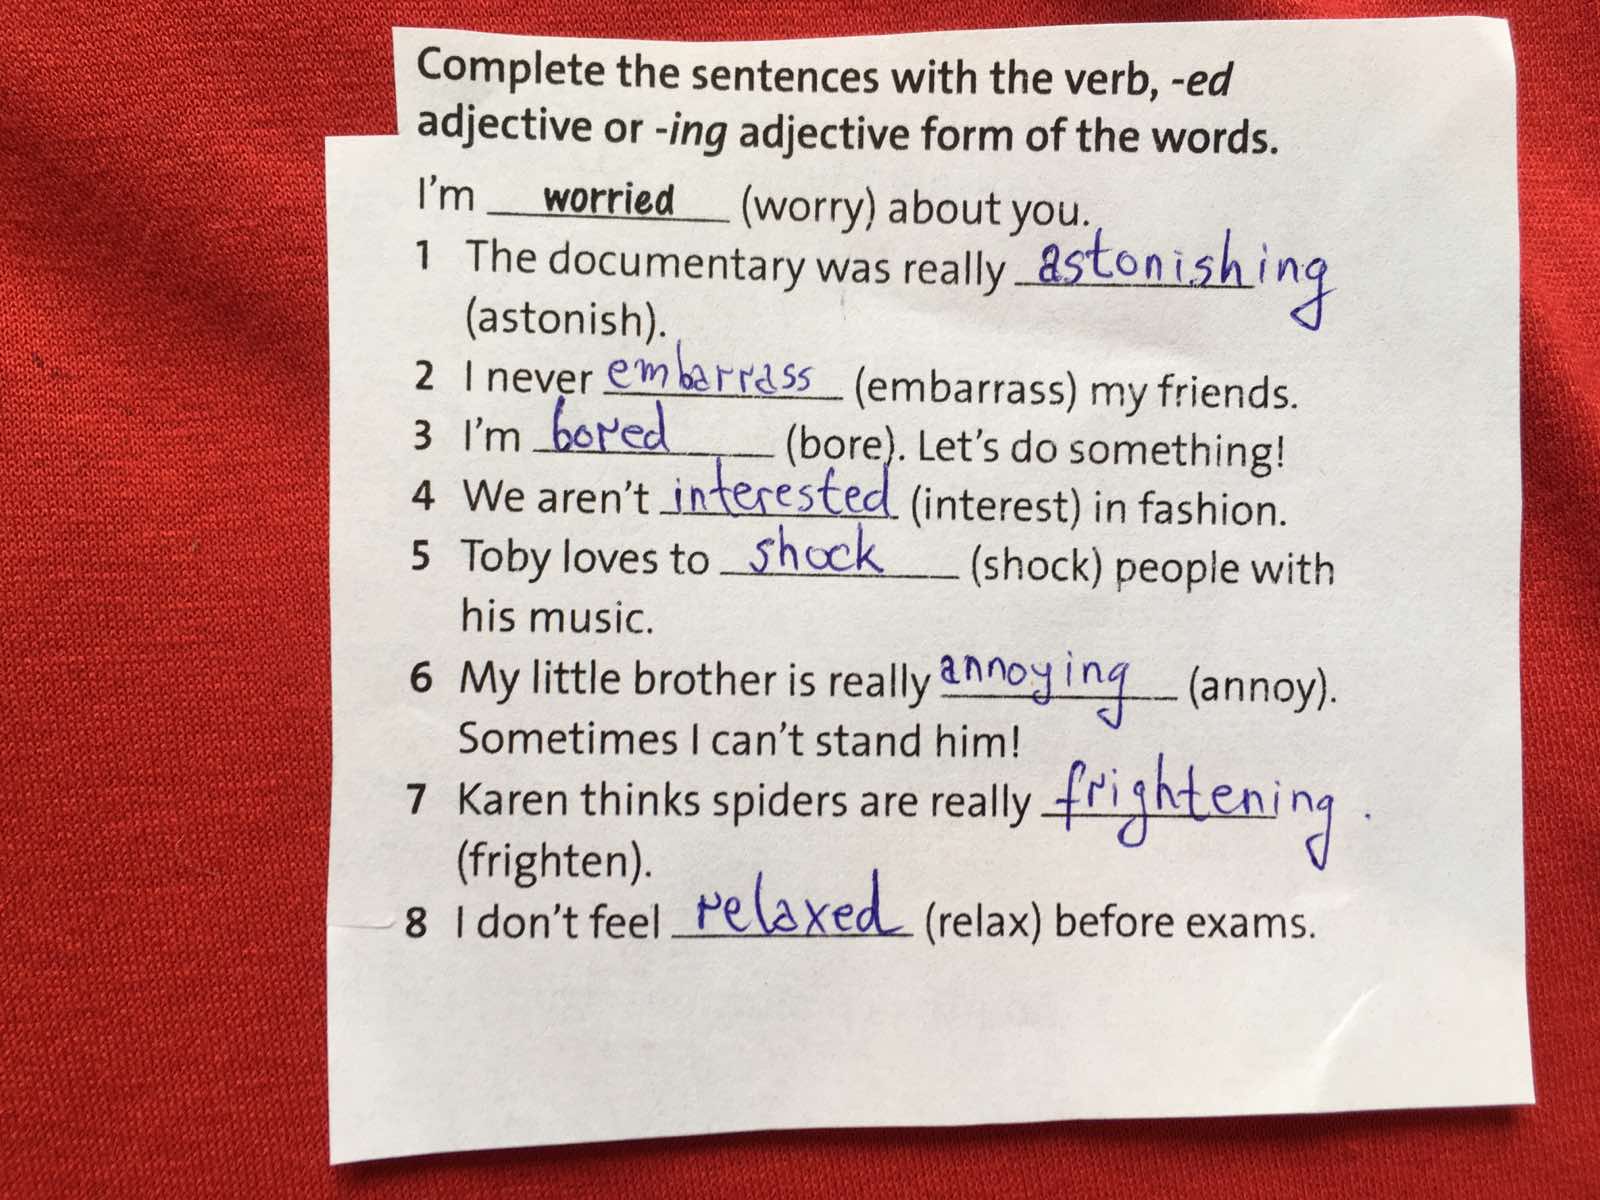 Complete the sentences with the verb, -ed
adjective or -ing adjective form of the words.
I'm worried (worry) about you.
1 The documentary was really astonishing
(astonish).
2 I never embarrass (embarrass) my friends.
3 I'm bored (bore). Let's do something!
4 We aren't interested (interest) in fashion.
5 Toby loves to shock (shock) people with
his music.
6 My little brother is really annoying (annoy).
Sometimes I can't stand him!
7 Karen thinks spiders are really frightening.
(frighten).
8 I don't feel relaxed (relax) before exams.